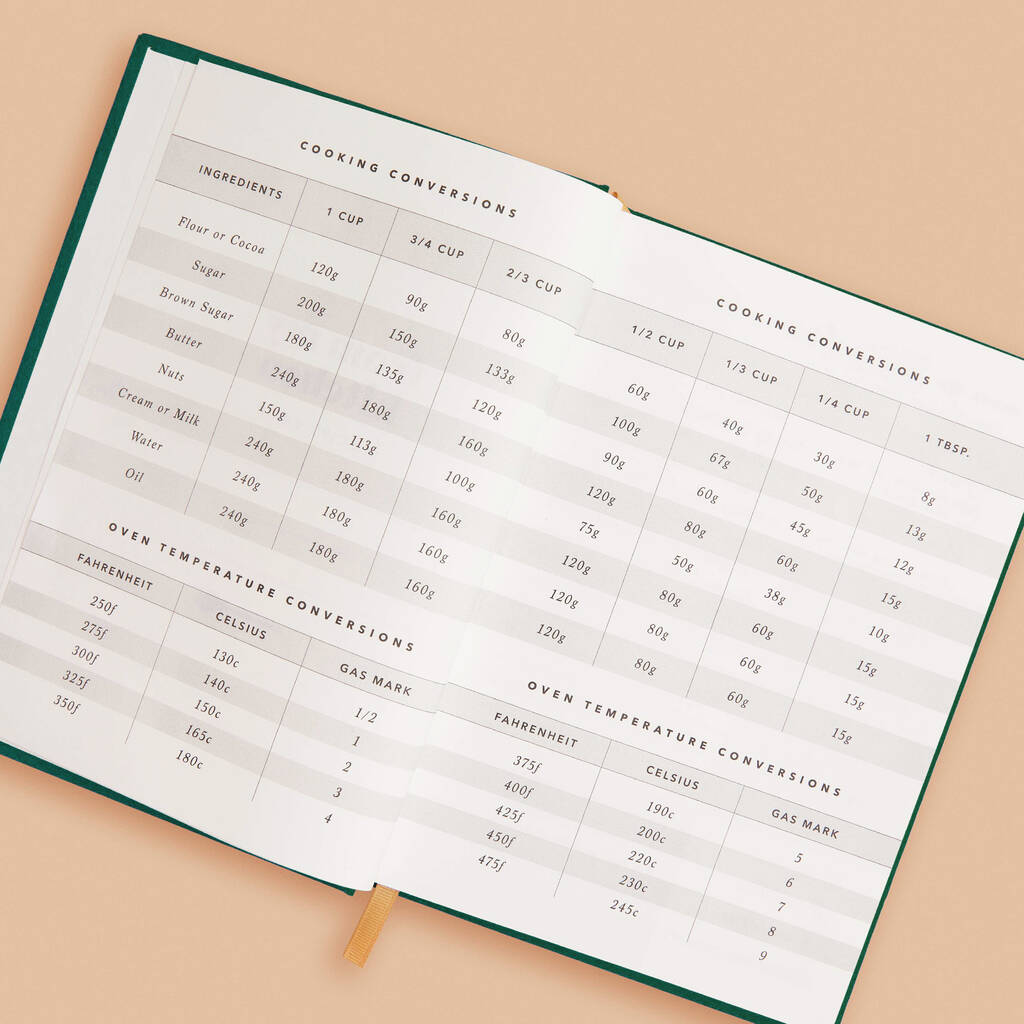 COOKING CONVERSIONS
INGREDIENTS 1 CUP 3/4 CUP 2/3 CUP
Flour or Cocoa 120g 90g 80g
Sugar 200g 150g 133g
Brown Sugar 180g 135g 120g
Butter 240g 180g 160g
Nuts 150g 113g 100g
Cream or Milk 240g 180g 160g
Water 240g 180g 160g
Oil 240g 180g 160g
OVEN TEMPERATURE CONVERSIONS
FAHRENHEIT CELSIUS GAS MARK
250f 130c 1/2
275f 140c 1
300f 150c 2
325f 165c 3
350f 180c 4
COOKING CONVERSIONS
1/2 CUP 1/3 CUP 1/4 CUP 1 TBSP.
60g 40g 30g 8g
100g 67g 50g 13g
90g 60g 45g 12g
120g 80g 60g 15g
75g 50g 38g 10g
120g 80g 60g 15g
120g 80g 60g 15g
120g 80g 60g 15g
OVEN TEMPERATURE CONVERSIONS
FAHRENHEIT CELSIUS GAS MARK
375f 190c 5
400f 200c 6
425f 220c 7
450f 230c 8
475f 245c 9